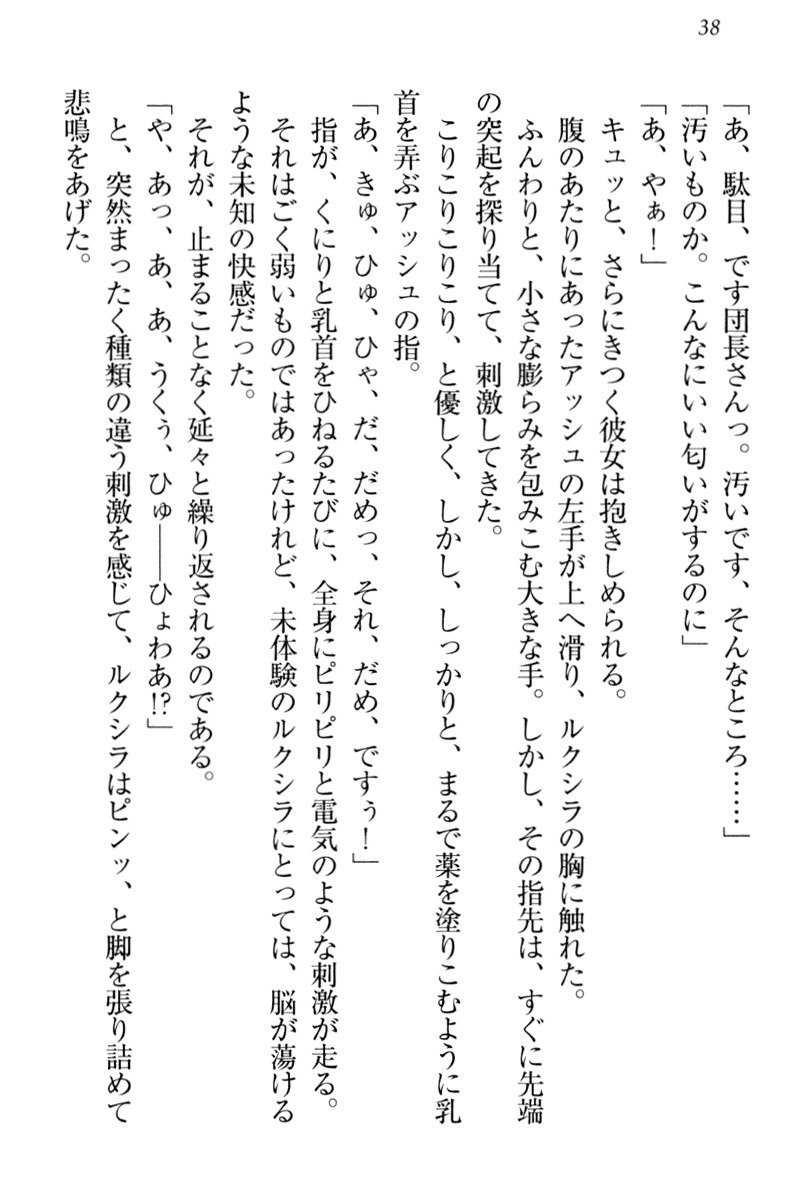 38
「あ、駄目、です団長さんっ。汚いです、そんなところ……」
「汚いものか。こんなにいい匂いがするのに」
「あ、やぁ！」
　キュッと、さらにきつく彼女は抱きしめられる。
　腹のあたりにあったアッシュの左手が上へ滑り、ルクシラの胸に触れた。
　ふんわりと、小さな膨らみを包みこむ大きな手。しかし、その指先は、すぐに先端
の突起を探り当てて、刺激してきた。
　こりこりこりこり、と優しく、しかし、しっかりと、まるで薬を塗りこむように乳
首を弄ぶアッシュの指。
「あ、きゅ、ひゅ、ひゃ、だ、だめっ、それ、だめ、ですぅ！」
　指が、くにりと乳首をひねるたびに、全身にピリピリと電気のような刺激が走る。
　それはごく弱いものではあったけれど、未体験のルクシラにとっては、脳が蕩ける
ような未知の快感だった。
　それが、止まることなく延々と繰り返されるのである。
「や、あっ、あ、あ、うくぅ、ひゅ――ひょわあ!?」
　と、突然まったく種類の違う刺激を感じて、ルクシラはピンッ、と脚を張り詰めて
悲鳴をあげた。